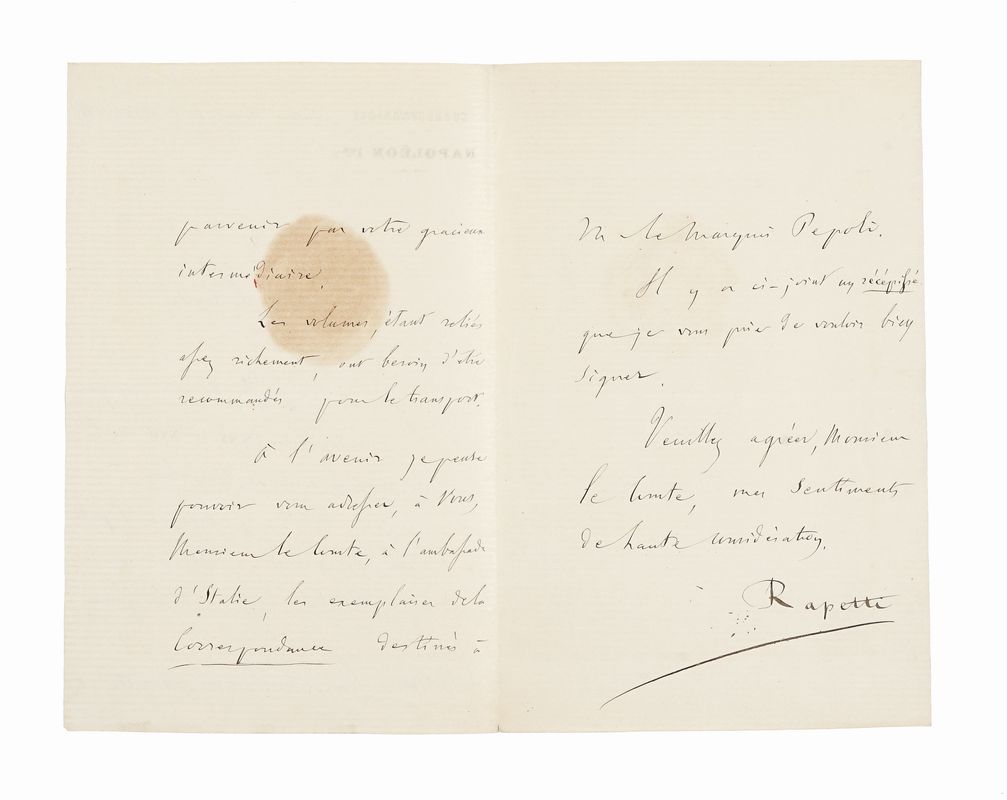 parvenir par votre gracieux
intermédiaire.
Les volumes, étant reliés
assez richement, ont besoin d'être
recommandés pour le transport.
À l'avenir je pense
pouvoir vous adresser, à Vous,
Monsieur le Comte, à l'ambassade
d'Italie, les exemplaires de la
Correspondance destinés à
M. le Marquis Pepoli.
Il y a ci-joint un récépissé
que je vous prie de vouloir bien
signer.
Veuillez agréer, Monsieur
le Comte, mes sentiments
de haute considération.
Rapetti
NAPOLÉON Ier